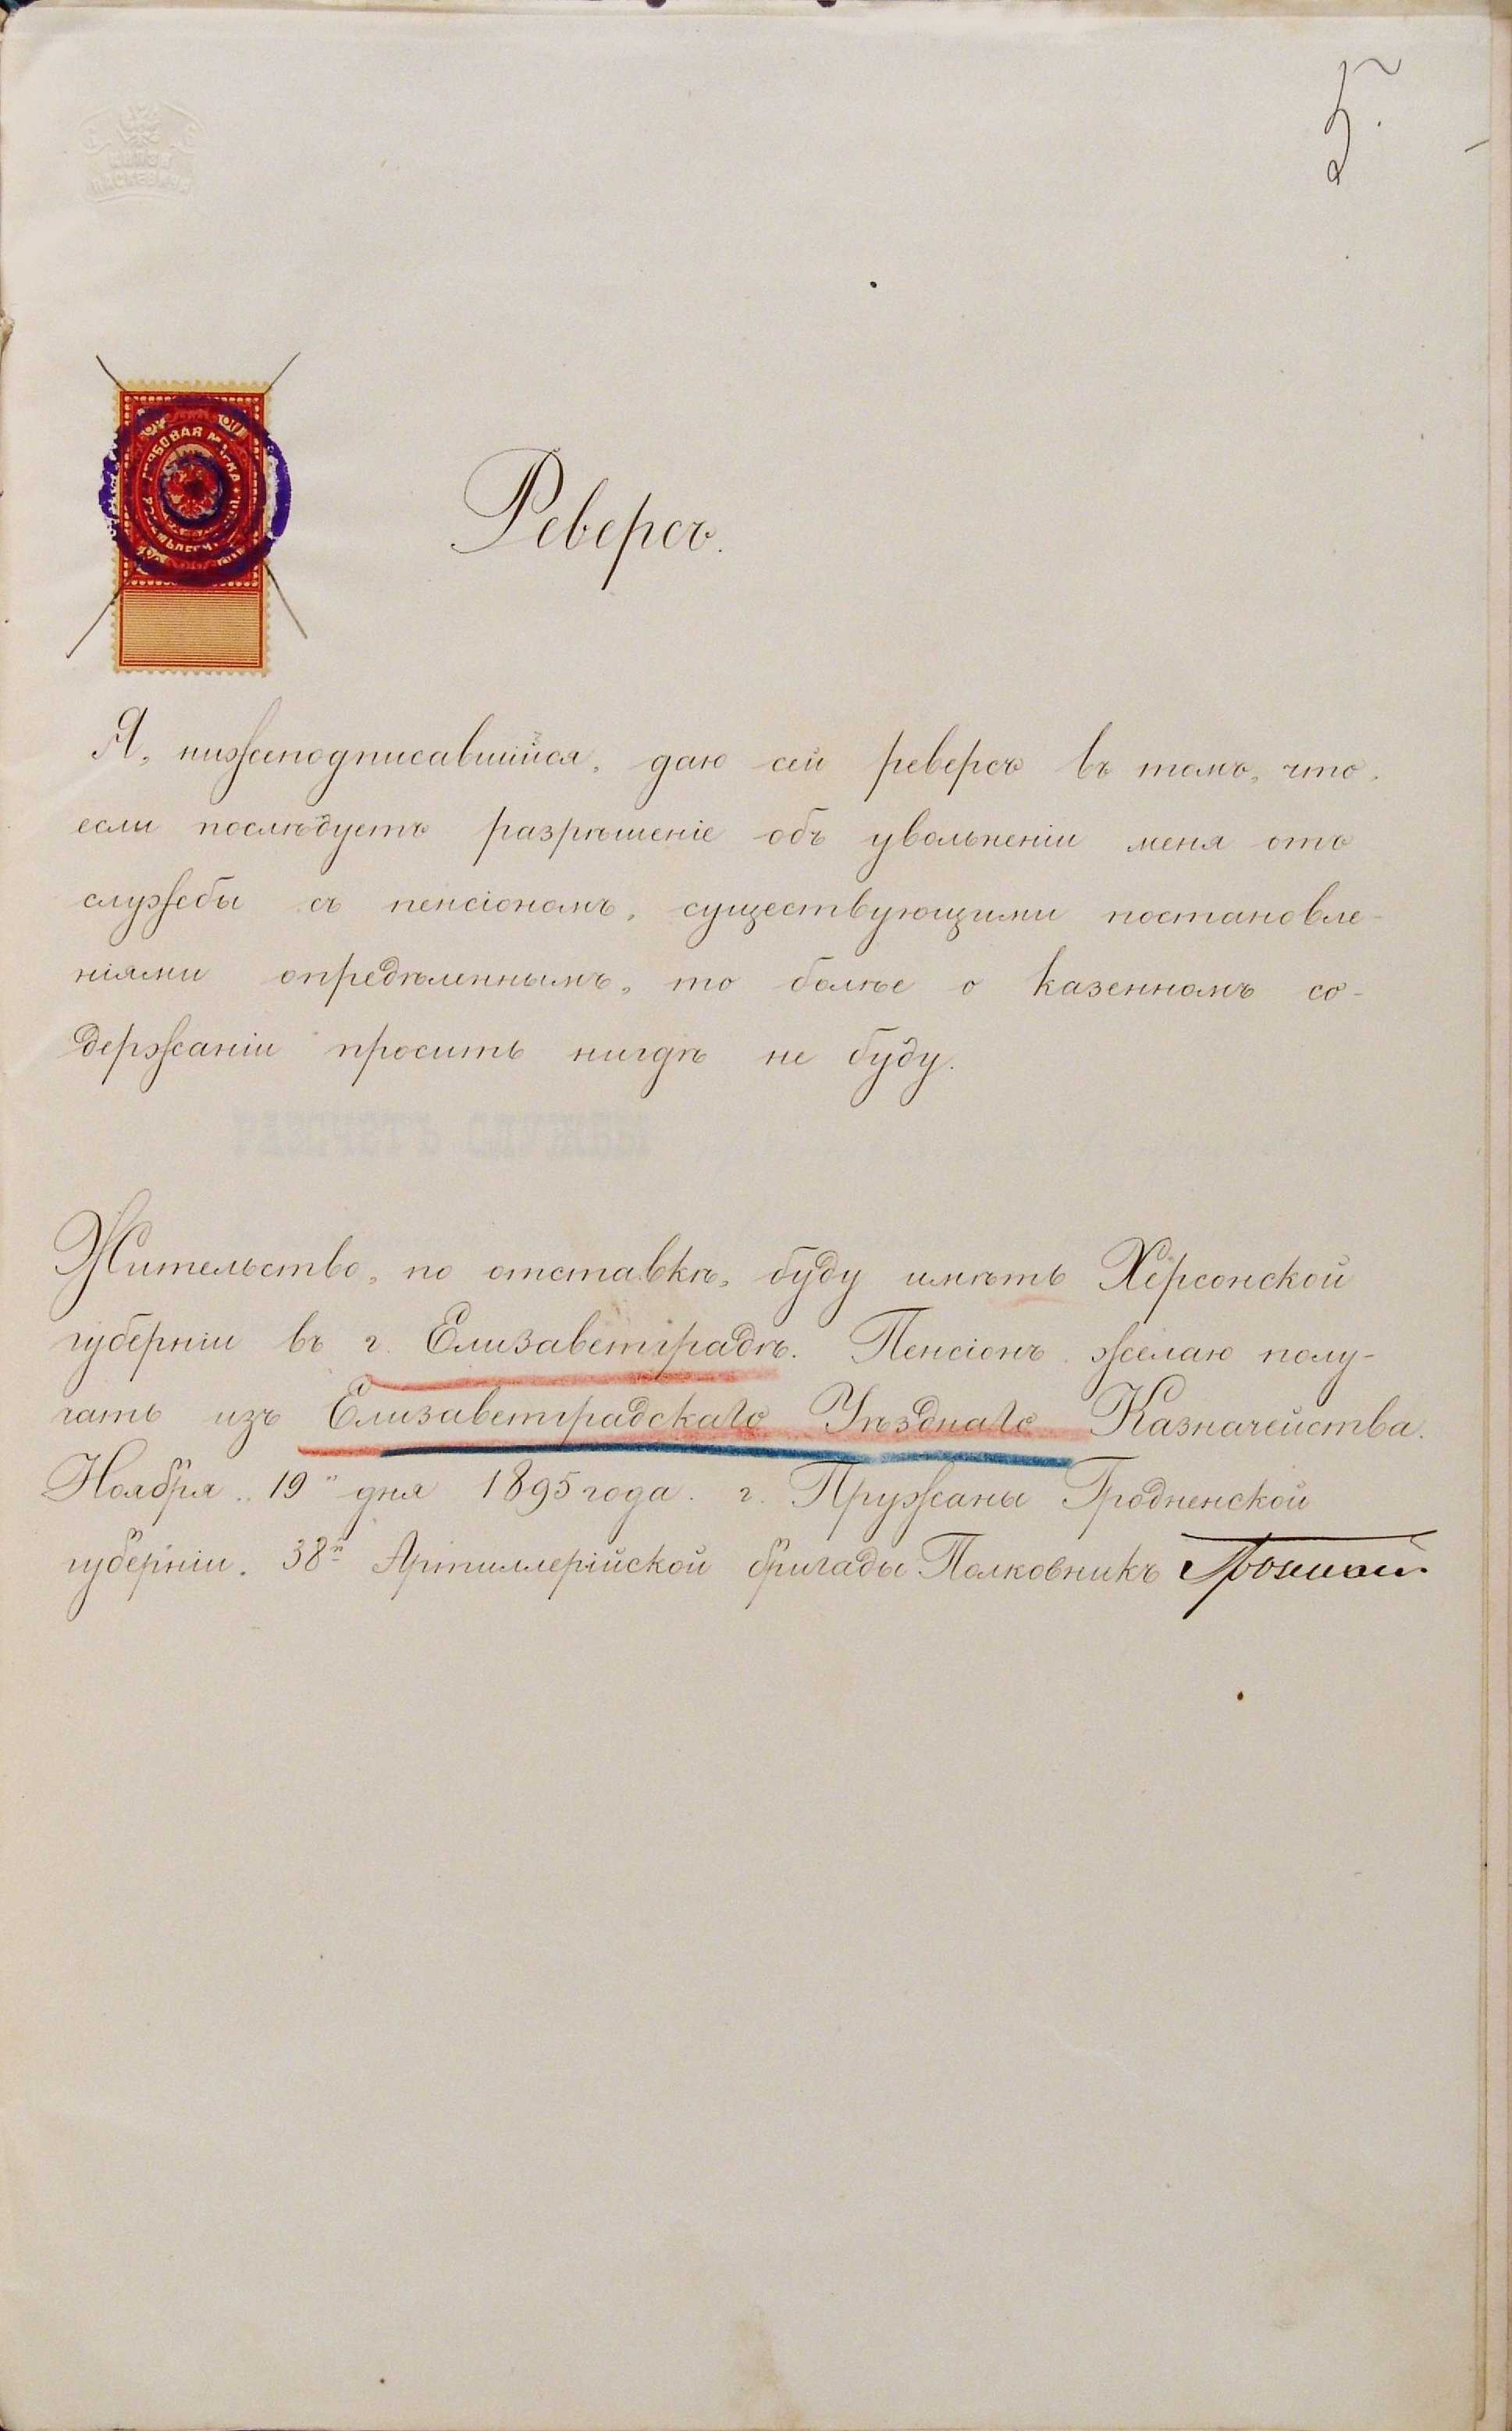 5.
КНЯЗЯ
ПАСКЕВИЧА
ГЕРБОВАЯ МАРКА
Реверсъ.
Я, нижеподписавшійся, даю сей реверсъ въ томъ, что,
если послѣдуетъ разрѣшеніе объ увольненіи меня отъ
службы съ пенсіономъ, существующими постановле-
ніями опредѣленнымъ, то болѣе о казенномъ со-
держаніи просить нигдѣ не буду.
РАЗСЧЕТЪ СЛУЖБЫ
Жительство, по отставкѣ, буду имѣть Херсонской
губерніи въ г. Елизаветградѣ. Пенсіонъ желаю полу-
чать изъ Елизаветградскаго Уѣзднаго Казначейства.
Ноября „19" дня 1895 года. г. Пружаны Гродненской
губерніи. 38й Артиллерійской бригады Полковникъ